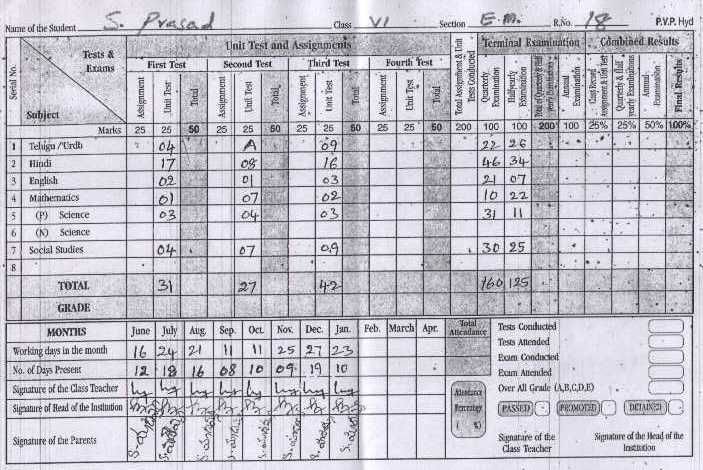 Name of the Student S. Prasad Class VI Section E.M. R.No. 18 P.V.P. Hyd
Serial No. Tests & Exams Subject Unit Test and Assignments Terminal Examination Combined Results
First Test Second Test Third Test Fourth Test
Assignment Unit Test Total Assignment Unit Test Total Assignment Unit Test Total Assignment Unit Test Total Total Assignment & Unit Tests Conducted Quarterly Examination Halfyearly Examination Annual Examination Quarterly & Half yearly Examinations Annual Examination Final Results
Marks 25 25 50 25 25 50 25 25 50 25 25 50 200 100 100 200 100 25% 25% 50% 100%
1 Telugu/Urdh 04 A 09 22 26
2 Hindi 17 08 16 46 34
3 English 02 01 03 21 07
4 Mathematics 01 07 02 10 22
5 (P) Science 03 04 03 31 11
6 (N) Science
7 Social Studies 04 07 09 30 25
8
TOTAL 31 27 42 160 125
GRADE
MONTHS June July Aug. Sep. Oct. Nov. Dec. Jan. Feb. March Apr.
Working days in the month 16 24 21 11 11 25 27 23
No. of Days Present 12 18 16 08 10 09 19 10
Signature of the Class Teacher
Signature of Head of the Institution
Signature of the Parents
Total Attendance
Attendance Percentage ( %)
Tests Conducted
Tests Attended
Exam Conducted
Exam Attended
Over All Grade (A,B,C,D,E)
PASSED PROMOTED DETAINED
Signature of the Class Teacher
Signature of the Head of the Institution